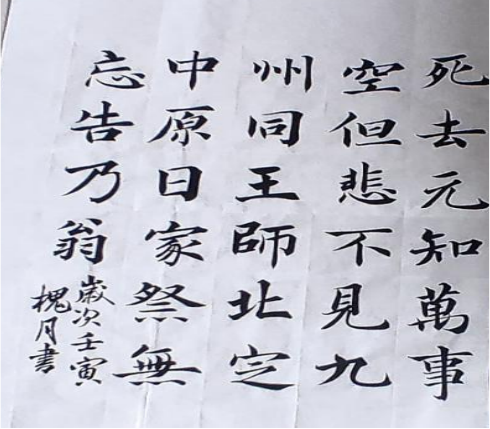 死去元知萬事
空但悲不見九
州同王師北定
中原日家祭無
忘告乃翁
歲次壬寅
槐月書